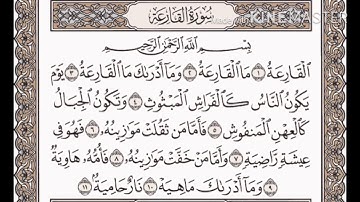 سُورَةُ القَارِعَةِ
KINEMASTER
بِسْمِ اللَّهِ الرَّحْمَٰنِ الرَّحِيمِ
الْقَارِعَةُ ١ مَا الْقَارِعَةُ ٢ وَمَا أَدْرَىٰكَ مَا الْقَارِعَةُ ٣ يَوْمَ
يَكُونُ النَّاسُ كَالْفَرَاشِ الْمَبْثُوثِ ٤ وَتَكُونُ الْجِبَالُ
كَالْعِهْنِ الْمَنفُوشِ ٥ فَأَمَّا مَن ثَقُلَتْ مَوَٰزِينُهُ ٦ فَهُوَ فِي
عِيشَةٍ رَّاضِيَةٍ ٧ وَأَمَّا مَنْ خَفَّتْ مَوَٰزِينُهُ ٨ فَأُمُّهُ هَاوِيَةٌ
٩ وَمَا أَدْرَىٰكَ مَا هِيَهْ ١٠ نَارٌ حَامِيَةٌ ١١